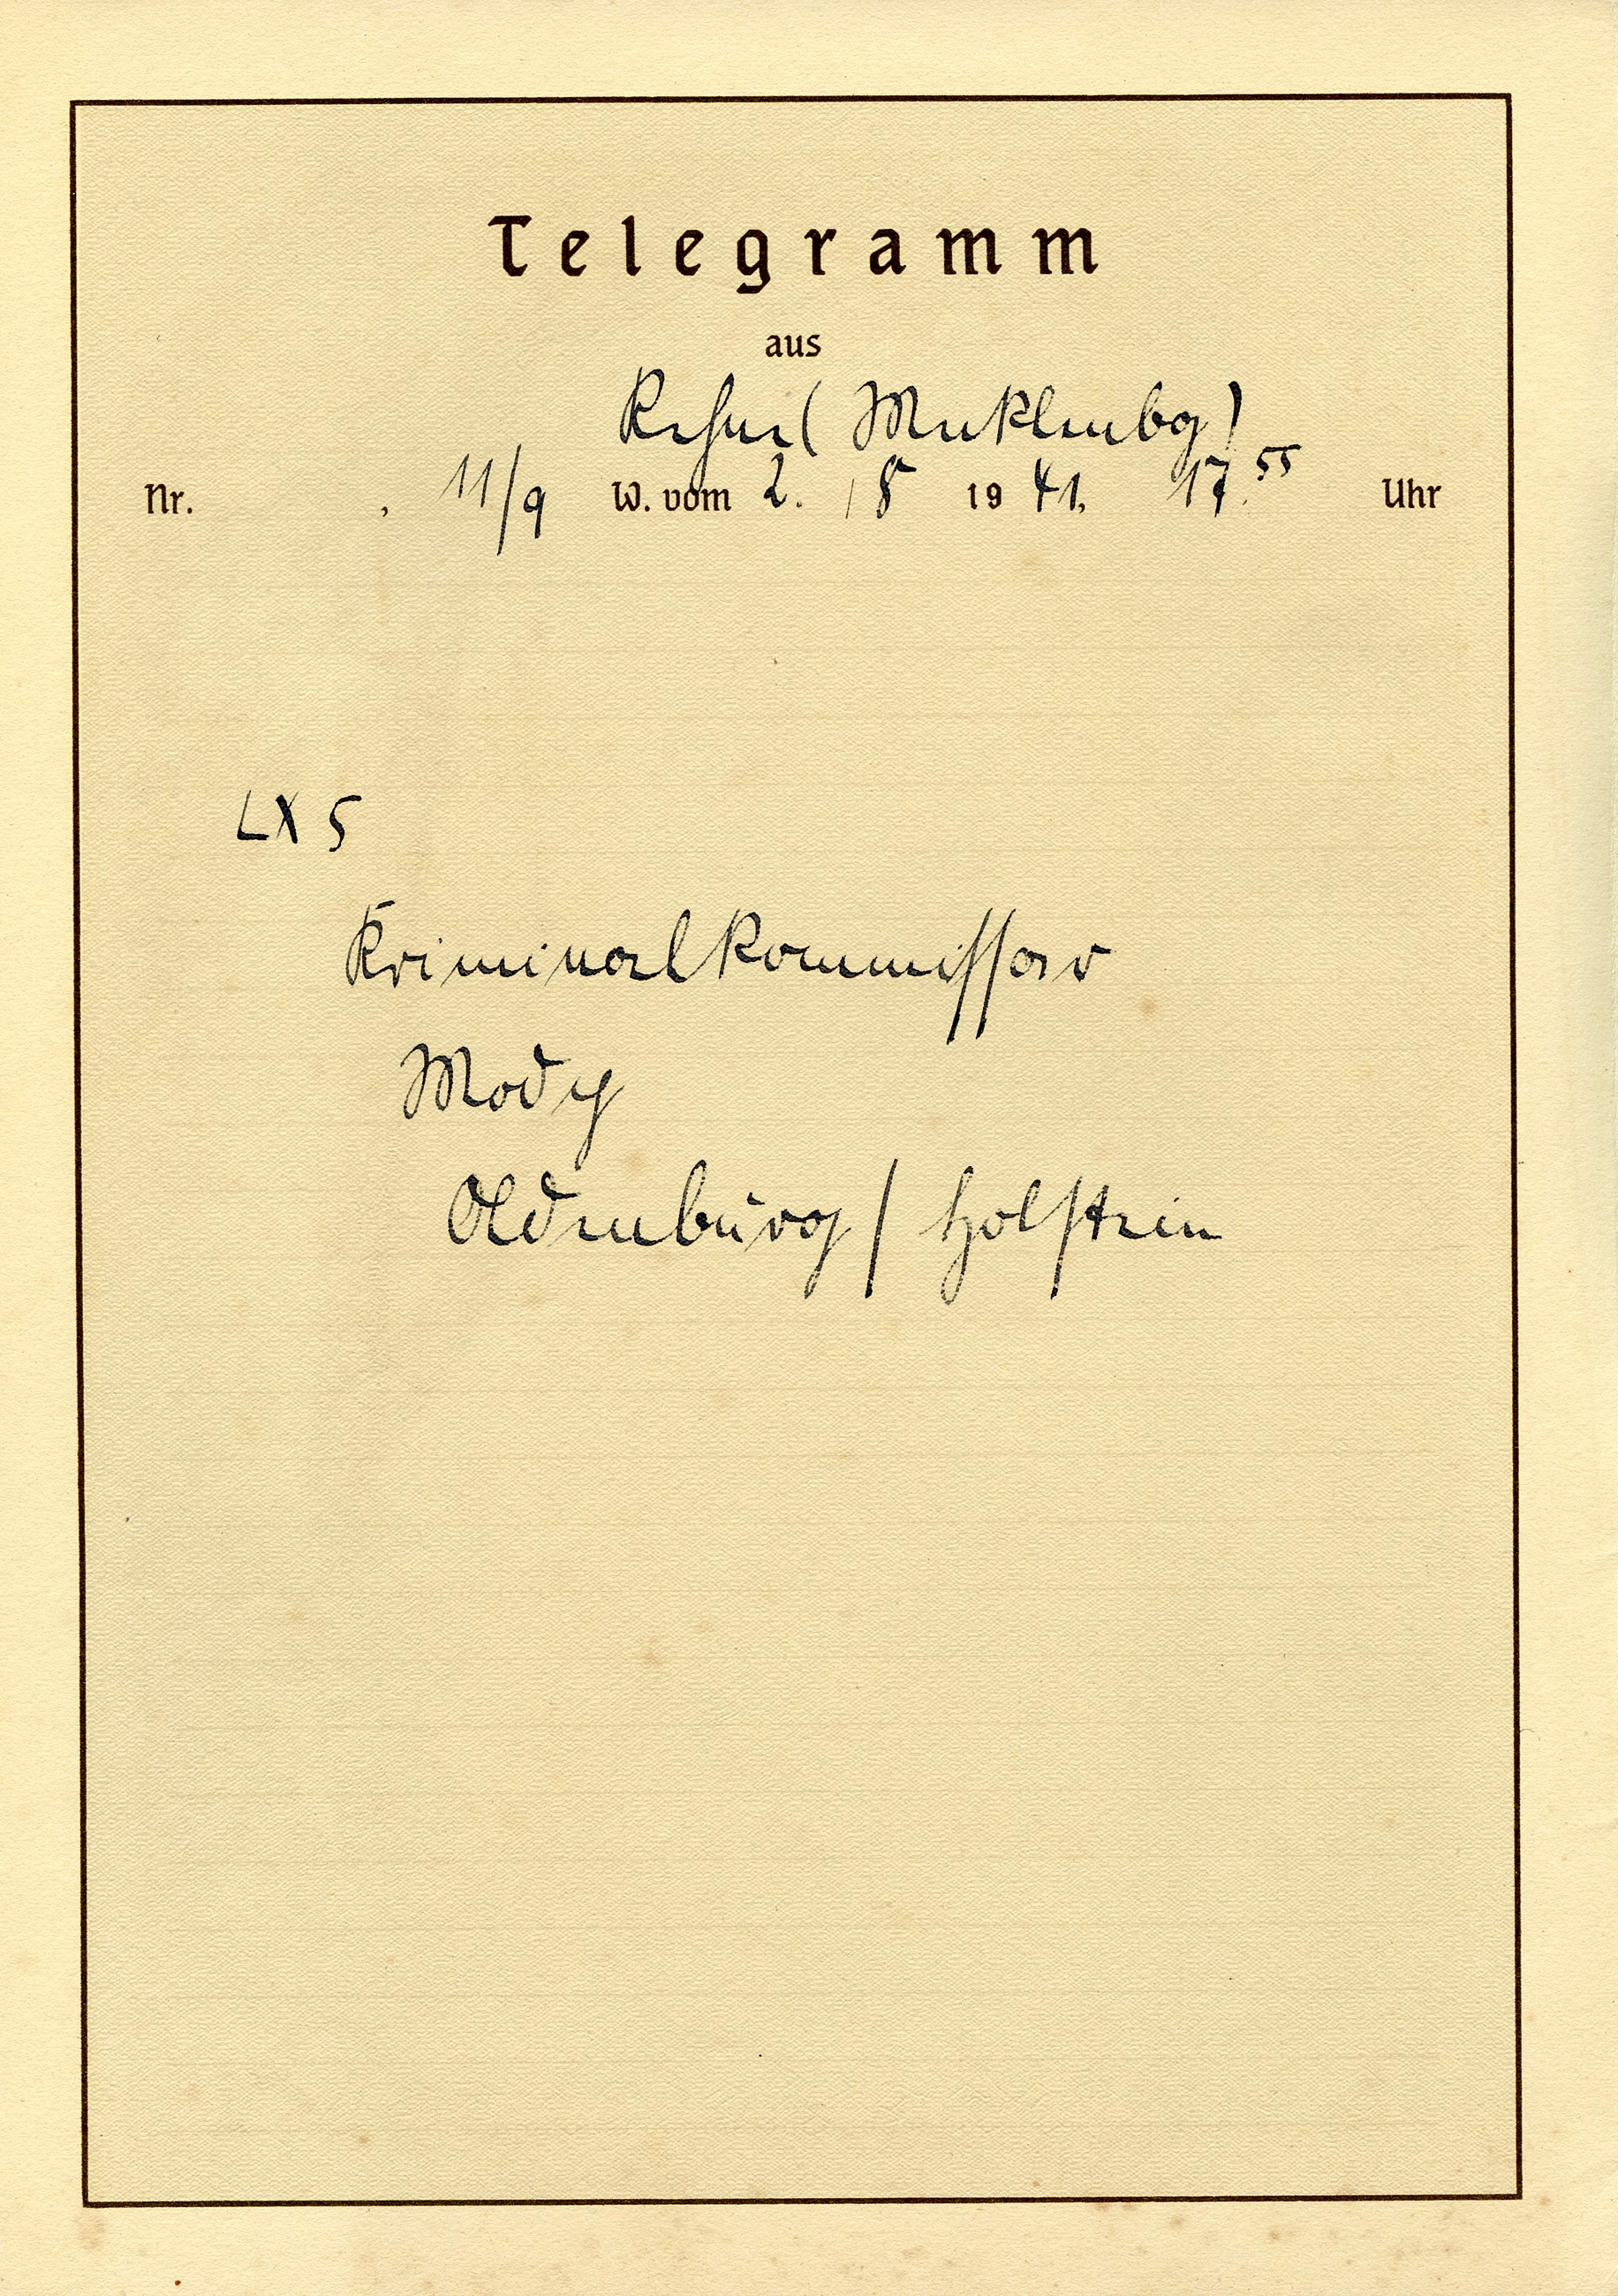 Telegramm
aus
Rehna (Mecklenbg)
Nr. , 11/9 W. vom 2. / 8 1941. 17.55 Uhr
LX 5
Kriminalkommissar
Mody
Oldenburg / Holstein